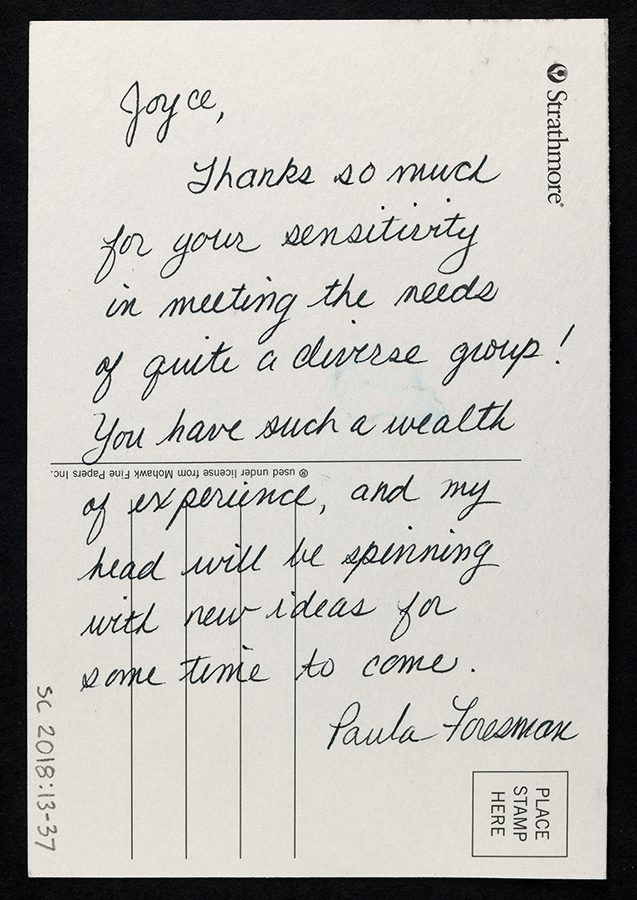 Strathmore®
Joyce,
Thanks so much
for your sensitivity
in meeting the needs
of quite a diverse group!
You have such a wealth
® used under license from Mohawk Fine Papers Inc.
of experience, and my
head will be spinning
with new ideas for
some time to come.
Paula Foresman
PLACE
STAMP
HERE
SC 2018:13-37